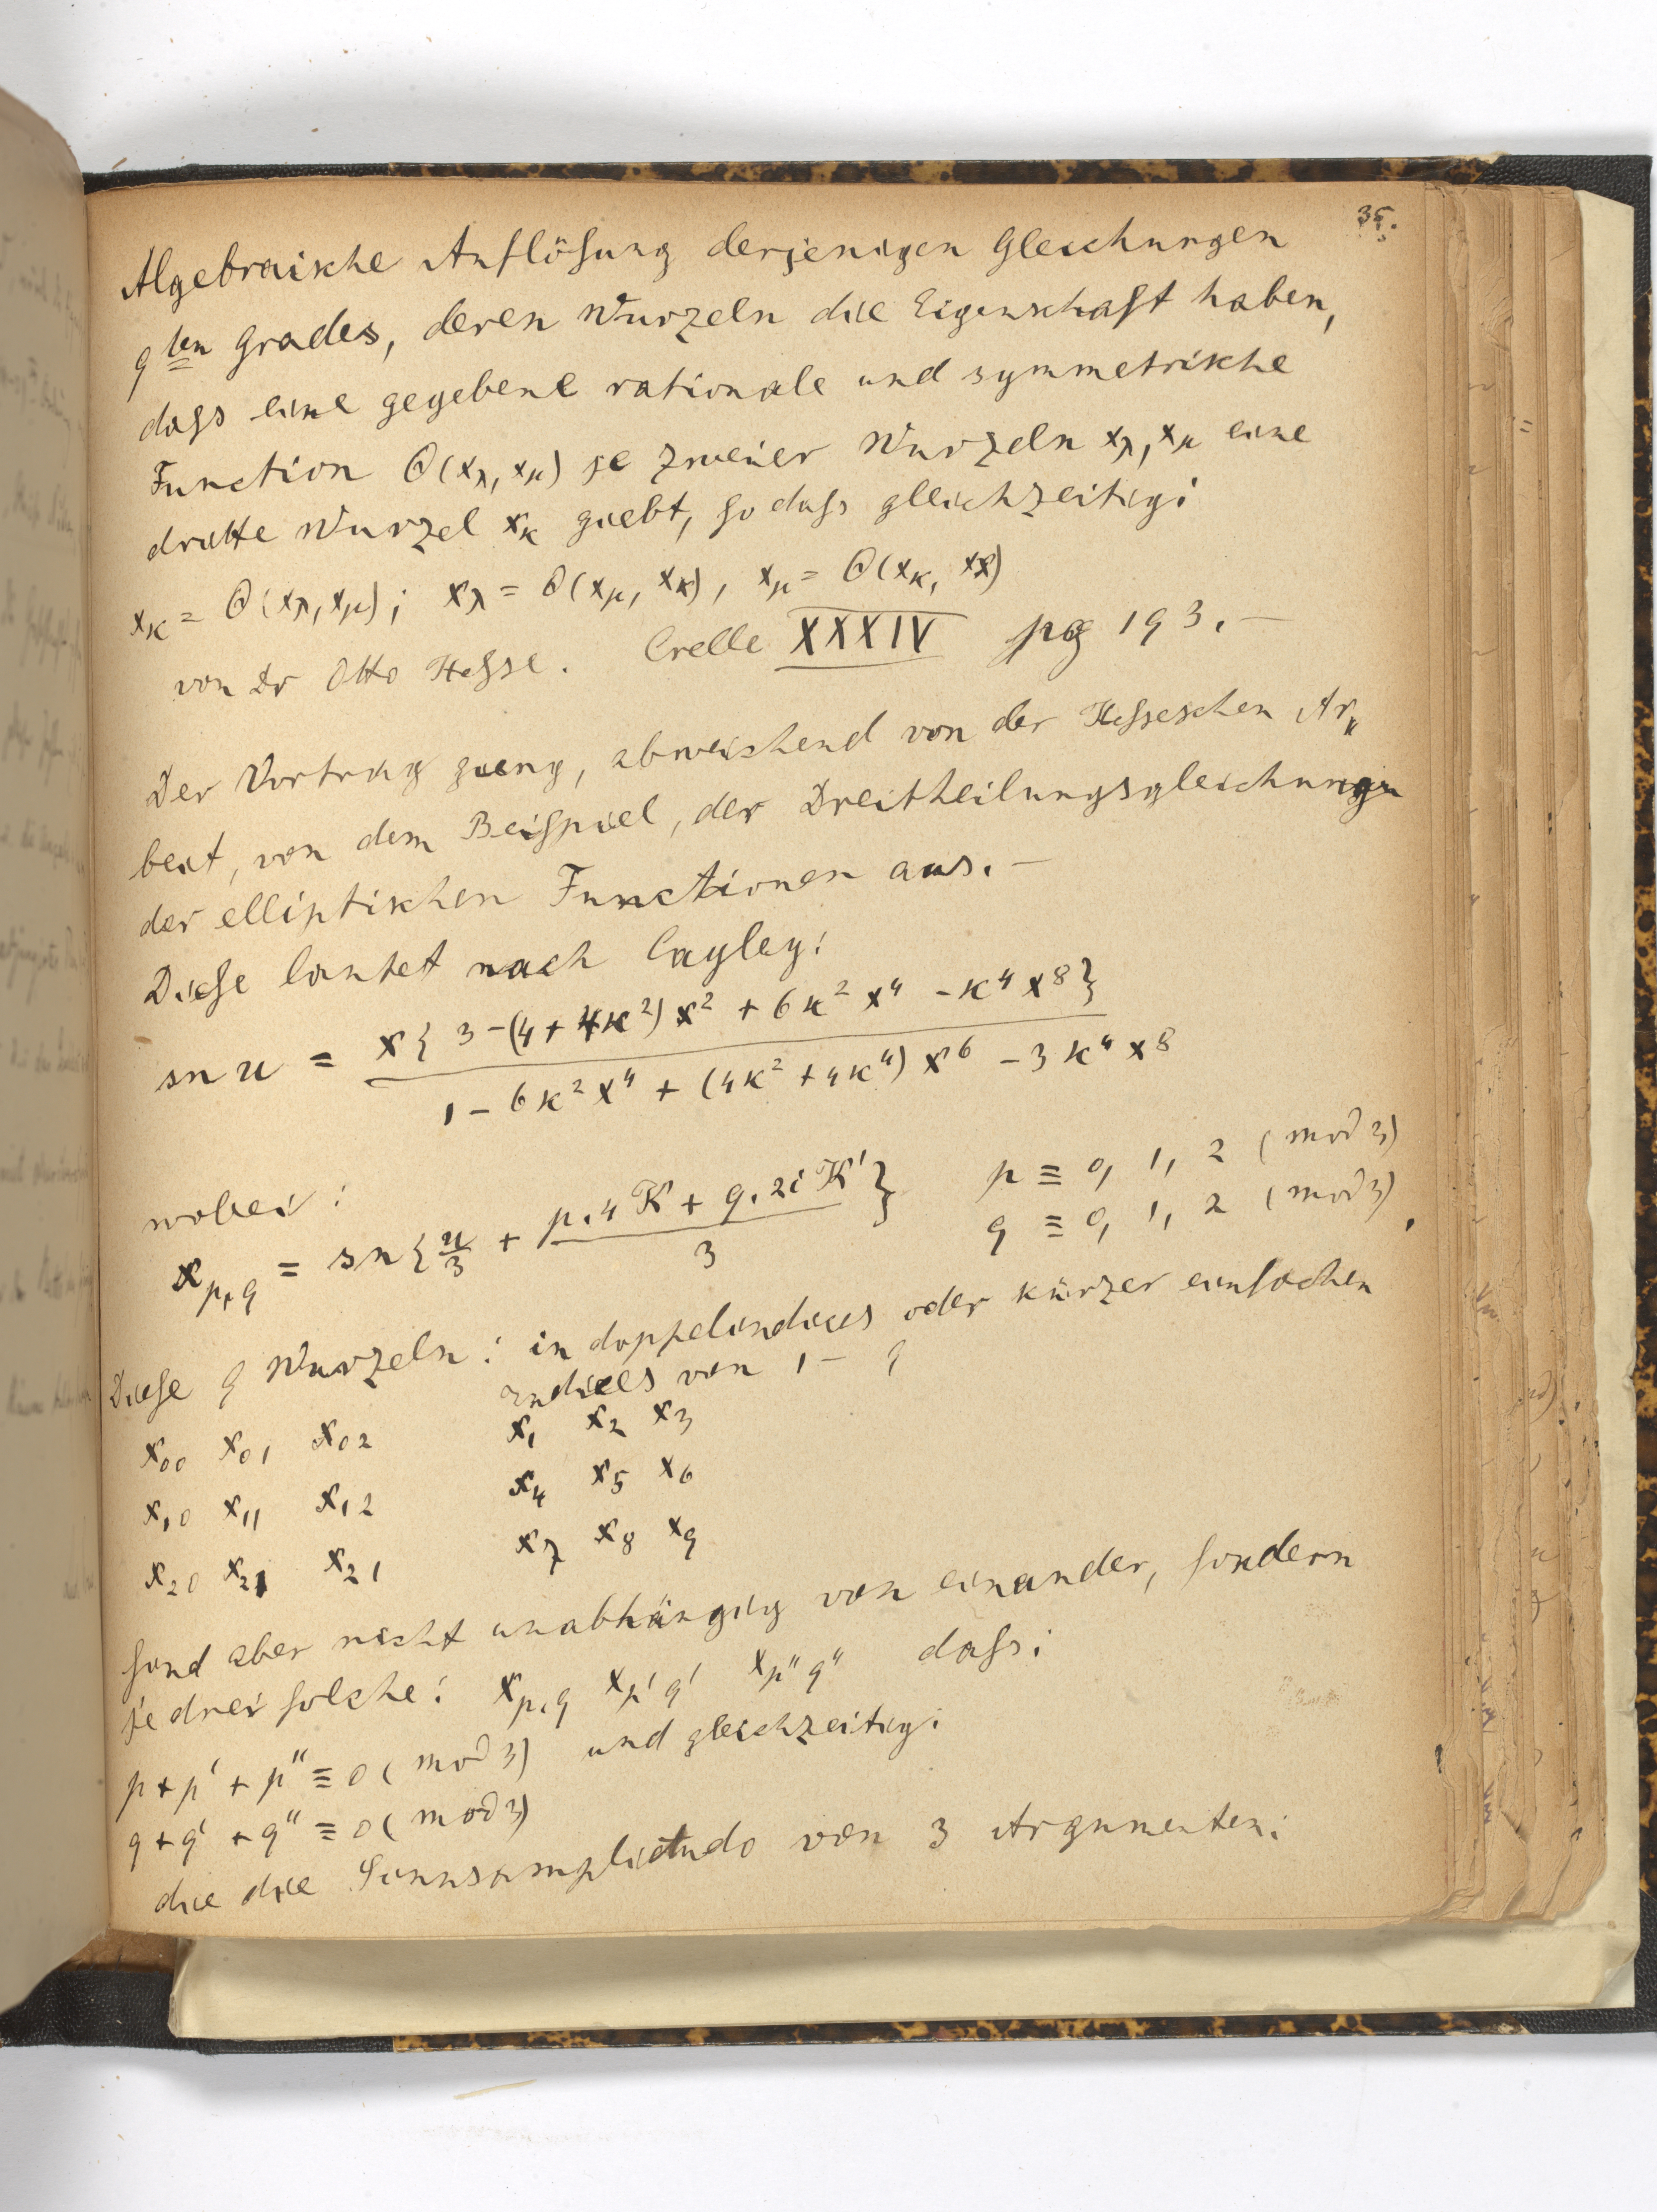 35.
Algebraische Auflösung derjenigen Gleichungen
9ten Grades, deren Wurzeln die Eigenschaft haben,
dass eine gegebene rationale und symmetrische
Function Θ(xλ, xμ) je zweier Wurzeln xλ, xμ eine
dritte Wurzel xκ giebt, so dass gleichzeitig:
xκ = Θ(xλ, xμ); xλ = Θ(xμ, xκ), xμ = Θ(xκ, xλ)
von Dr Otto Hesse. Crelle XXXIV pg 193.—
Der Vortrag gieng, abweichend von der Hesseschen Ar„
beit, von dem Beispiel, der Dreitheilungsgleichungen
der elliptischen Functionen aus.—
Diese lautet nach Cayley:
sn u = x{3-(4+4κ²)x² + 6κ²x⁴ - κ⁴x⁸} / 1 - 6κ²x⁴ + (4κ² + 4κ⁴)x⁶ - 3κ⁴x⁸
wobei: p ≡ 0, 1, 2 (mod 3)
x p,q = sn{u/3 + p.4K + q.2iK' / 3} q ≡ 0, 1, 2 (mod 3),
Diese 9 Wurzeln: in doppelindices oder kürzer einfachen
indices von 1 – 9
x₀₀ x₀₁ x₀₂ x₁ x₂ x₃
x₁₀ x₁₁ x₁₂ x₄ x₅ x₆
x₂₀ x₂₁ x₂₁ x₇ x₈ x₉
sind aber nicht unabhängig von einander, sondern
je drei solche: x p,q x p'q' x p''q'' dass:
p + p' + p'' ≡ 0 (mod 3) und gleichzeitig:
q + q' + q'' ≡ 0 (mod 3)
die die Sinusamplitudo von 3 Argumenten: